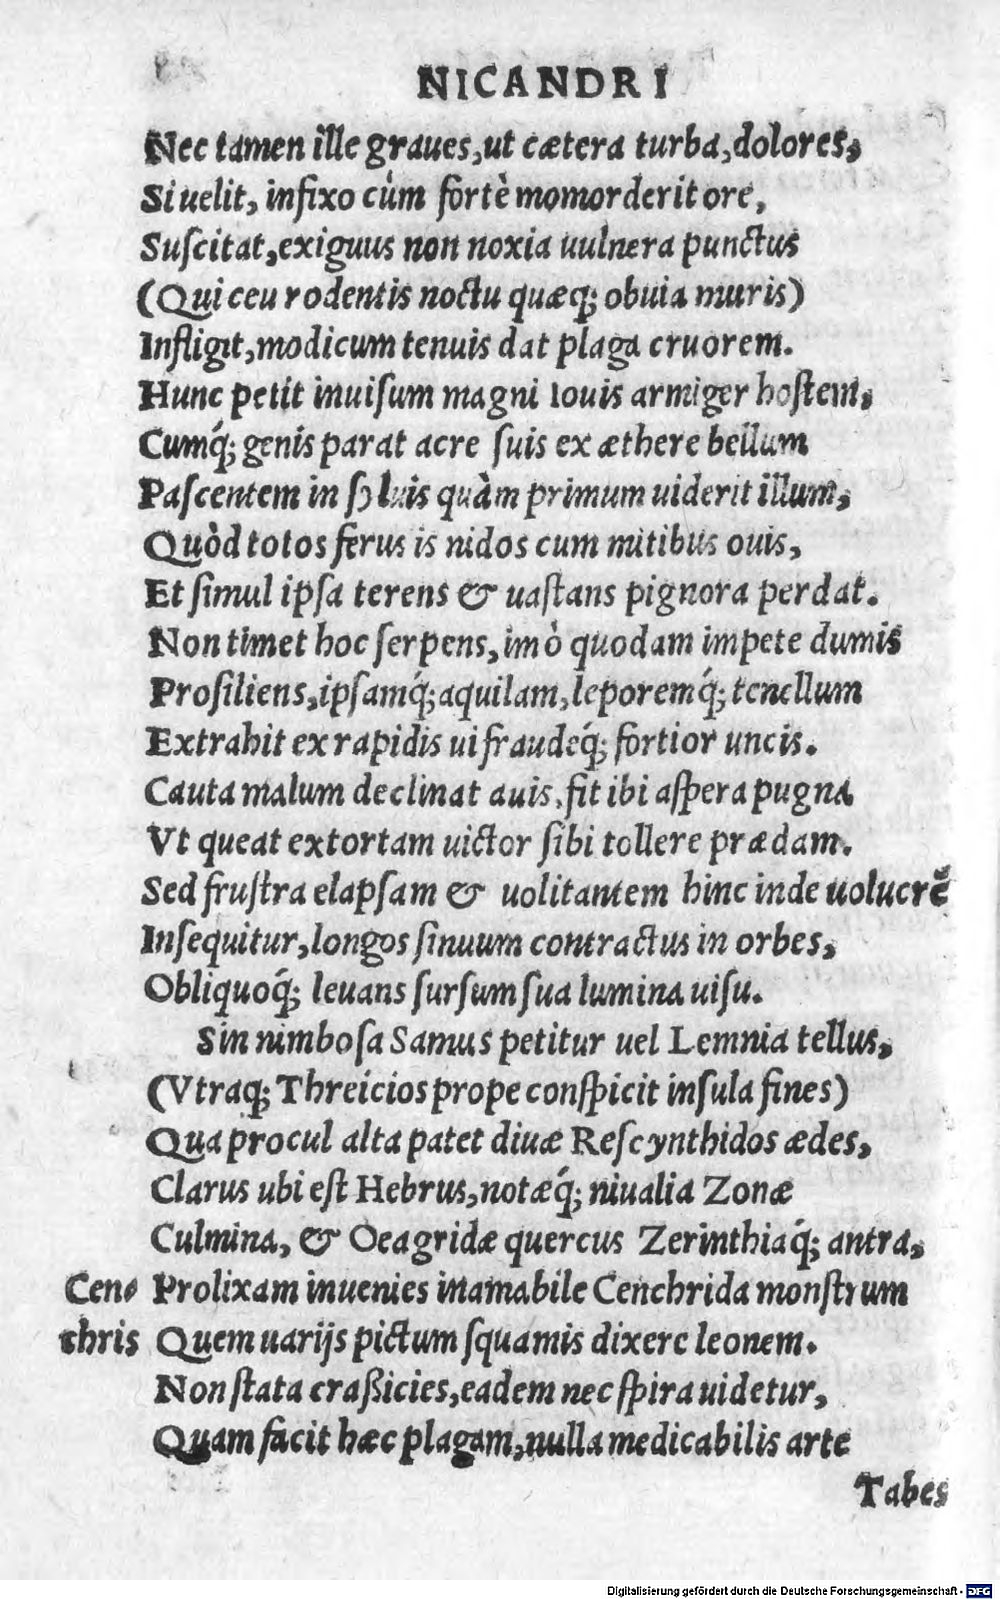 NICANDRI
Nec tamen ille graues, ut cætera turba, dolores,
Si uelit, infixo cùm fortè momorderit ore,
Suſcitat, exiguus non noxia uulnera punctus
(Qui ceu rodentis noctu quæq; obuia muris)
Infligit, modicum tenuis dat plaga cruorem.
Hunc petit inuiſum magni Iouis armiger hoſtem,
Cumq́; genis parat acre ſuis ex æthere bellum
Paſcentem in ſyluis quàm primum uiderit illum,
Quòd totos ferus is nidos cum mitibus ouis,
Et ſimul ipſa terens & uaſtans pignora perdat.
Non timet hoc ſerpens, imò quodam impete dumis
Proſiliens, ipſamq́; aquilam, leporemq́; tenellum
Extrahit ex rapidis ui fraudéq́; fortior uncis.
Cauta malum declinat auis, fit ibi aſpera pugna
Vt queat extortam uictor ſibi tollere prædam.
Sed fruſtra elapſam & uolitantem hinc inde uolucrē
Inſequitur, longos ſinuum contractus in orbes,
Obliquoq́; leuans ſurſum ſua lumina uiſu.
Sin nimboſa Samus petitur uel Lemnia tellus,
(Vtraq; Threicios prope conſpicit inſula fines)
Qua procul alta patet diuæ Reſcynthidos ædes,
Clarus ubi eſt Hebrus, notæq́; niualia Zonæ
Culmina, & Oeagridæ quercus Zerinthiaq́; antra,
Cen- Prolixam inuenies inamabile Cenchrida monſtrum
chris Quem uarijs pictum ſquamis dixere leonem.
Non ſtata craßicies, eadem nec ſpira uidetur,
Quam facit hæc plagam, nulla medicabilis arte
Tabes
Digitalisierung gefördert durch die Deutsche Forschungsgemeinschaft - DFG